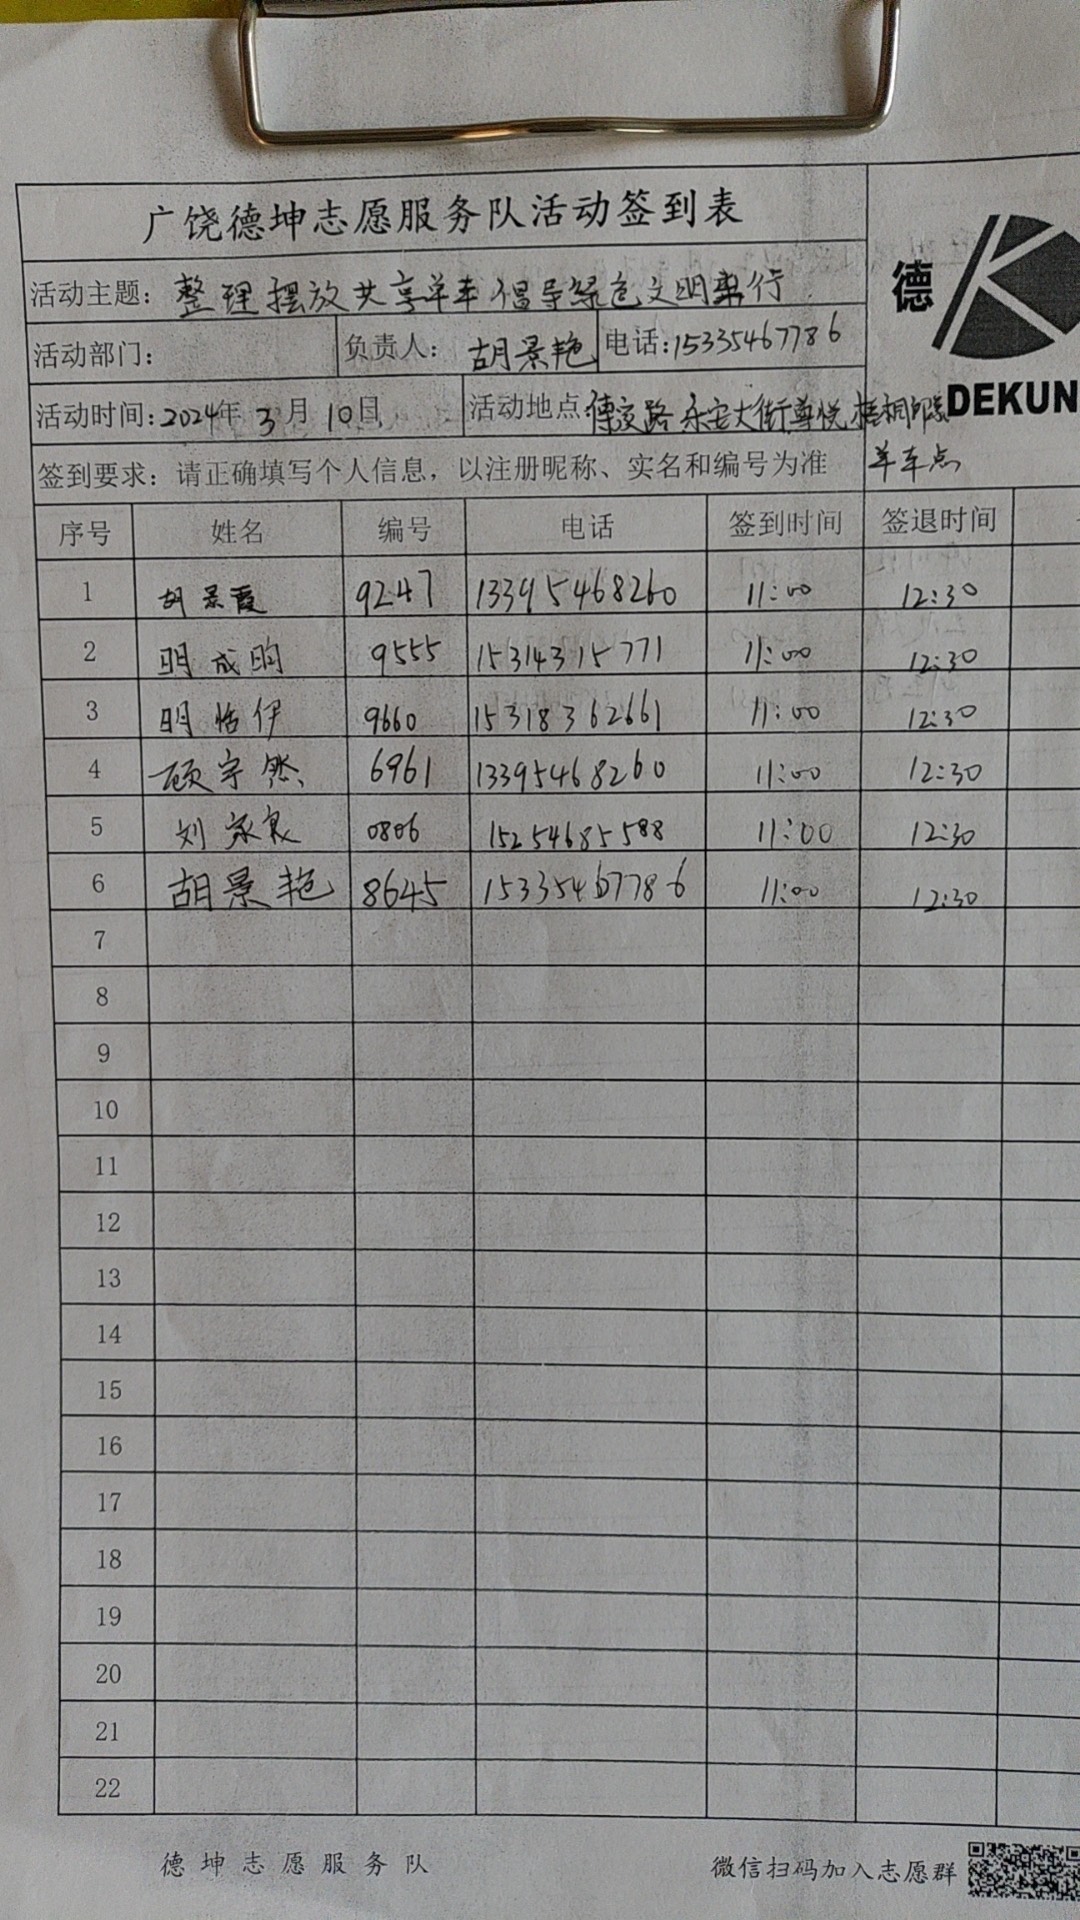 广饶德坤志愿服务队活动签到表
活动主题：整理摆放共享单车 倡导绿色文明出行
活动部门： 负责人：胡景艳 电话：15335467786
德
DEKUN
活动时间：2024年3月10日 活动地点：傅交路永安大街尊悦梧桐
单车点
签到要求：请正确填写个人信息，以注册昵称、实名和编号为准
序号 姓名 编号 电话 签到时间 签退时间
1 胡景霞 9247 13395468260 11:00 12:30
2 明成昀 9555 15314315771 11:00 12:30
3 明怡伊 9660 15318362661 11:00 12:30
4 顾宇然 6961 13395468260 11:00 12:30
5 刘家良 0806 15254685588 11:00 12:30
6 胡景艳 8645 15335467786 11:00 12:30
7
8
9
10
11
12
13
14
15
16
17
18
19
20
21
22
德坤志愿服务队 微信扫码加入志愿群